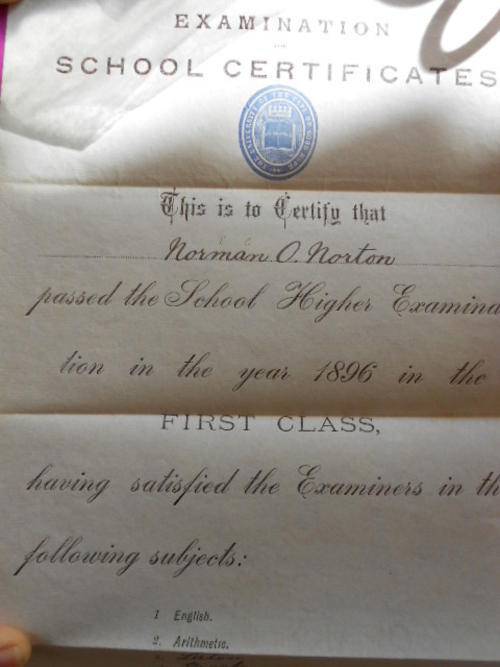 EXAMINATION
SCHOOL CERTIFICATES
This is to Certify that
Norman O. Norton
passed the School Higher Examina
tion in the year 1896 in the
FIRST CLASS,
having satisfied the Examiners in th
following subjects:
1 English.
2. Arithmetic.